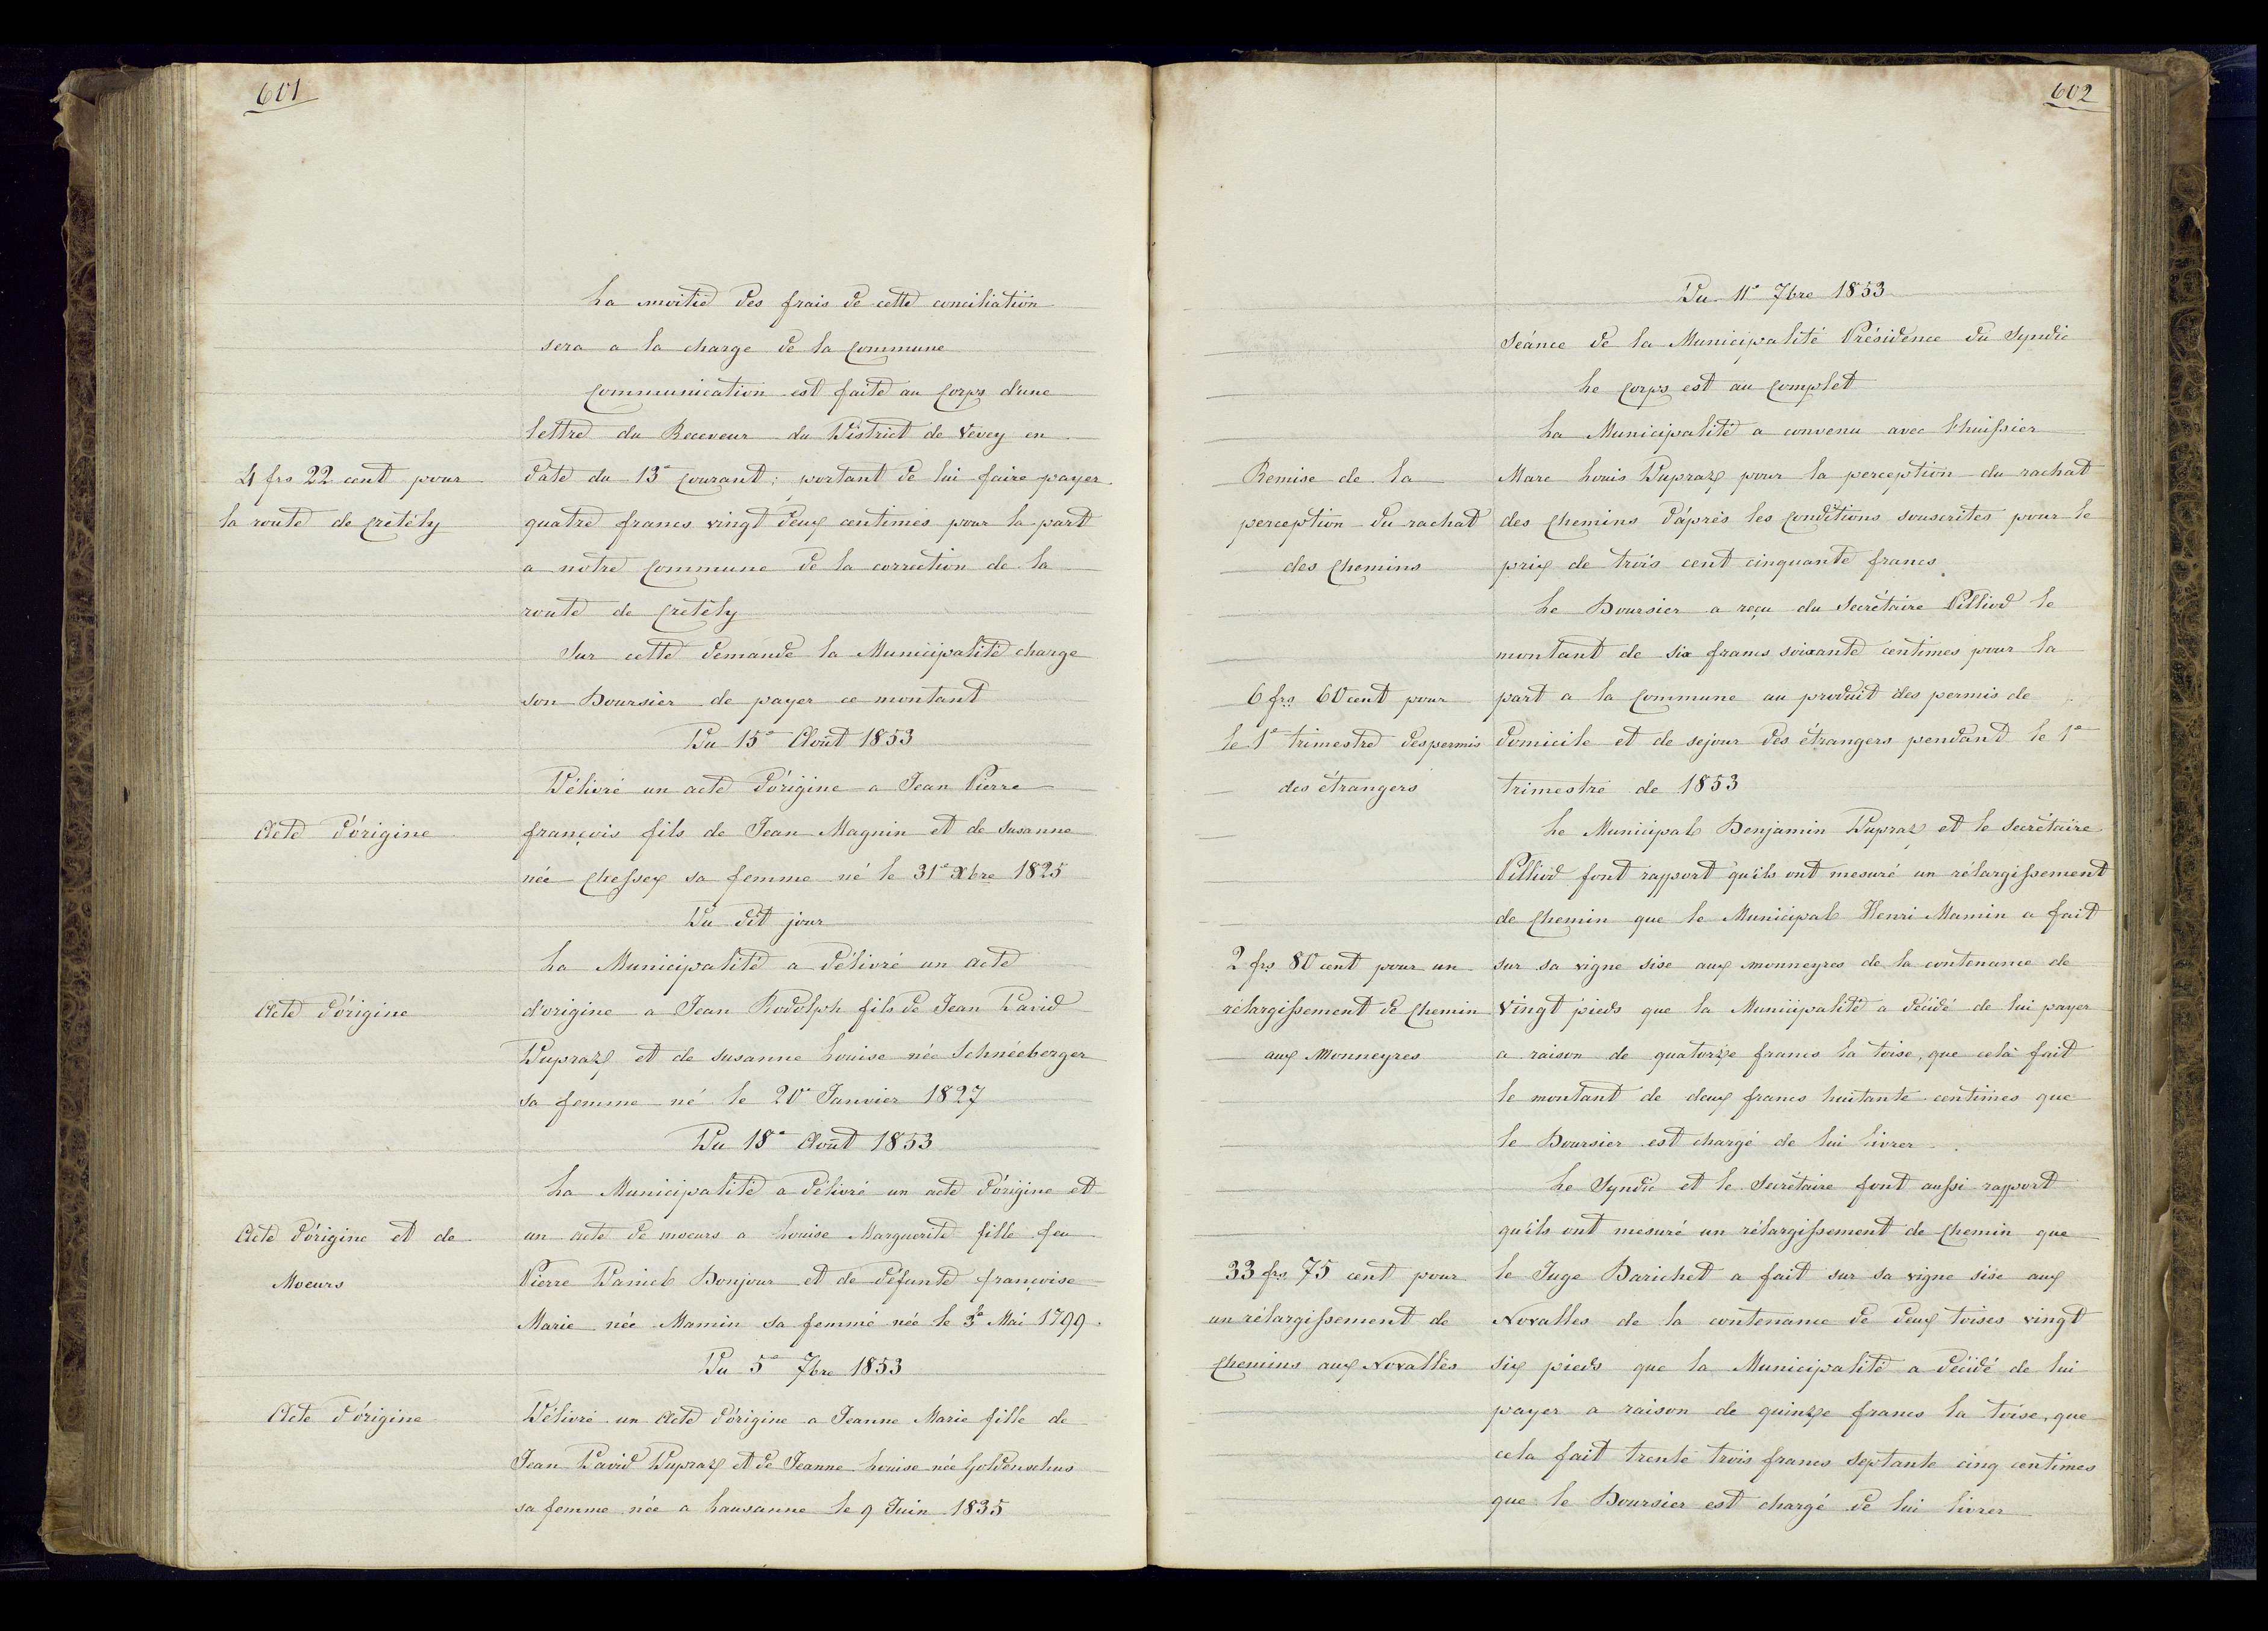 601
La moitié des frais de cette conciliation
sera a la charge de la Commune
Communication est faite au Corps d'une
lettre du Receveur du District de Vevey en
4 frs 22 cent pour
date du 13e Courant; portant de lui faire payer
la route de Crételly
quatre francs vingt deux centimes pour la part
a notre Commune de la correction de la
route de Crételly
Sur cette demande la Municipalité charge
son Boursier de payer ce montant
Du 15e Août 1853
Délivré un acte d'origine a Jean Pierre
Acte d'origine
françois fils de Jean Magnin et de Susanne
née Chessex sa femme né le 31e Xbre 1825
Du dit jour
La Municipalité a délivré un acte
Acte d'origine
d'origine a Jean Rodolph fils de Jean David
Dupraz et de Susanne Louise née Schnéeberger
sa femme né le 20e Janvier 1827
Du 18e Août 1853
La Municipalité a délivré un acte d'origine et
Acte d'origine et de
un acte de moeurs a Louise Marguerite fille feu
Moeurs
Pierre Daniel Bonjour et de défunte françoise
Marie née Mamin sa femme née le 3e Mai 1799.
Du 5e 7bre 1853
Acte d'origine
Délivré un Acte d'origine a Jeanne Marie fille de
Jean David Dupraz et de Jeanne Louise née Goldenschus
sa femme née a Lausanne le 9 Juin 1835
602
Du 11e 7bre 1853
Séance de la Municipalité Présidence du Syndic
Le Corps est au Complet
La Municipalité a convenu avec l'huissier
Remise de la
Marc Louis Dupraz pour la perception du rachat
perception du rachat
des Chemins d'après les Conditions souscrites pour le
des Chemins
prix de trois cent cinquante francs
Le Boursier a reçu du Secrétaire Pilliod le
montant de six francs soixante centimes pour la
6 frs 60 cent pour
part a la Commune au produit des permis de
le 1e trimestre des permis
domicile et de sejour des étrangers pendant le 1e
des étrangers
trimestre de 1853
Le Municipal Benjamin Dupraz et le secrétaire
Pilliod font rapport qu'ils ont mesuré un rélargissement
de Chemin que le Municipal Henri Mamin a fait
2 frs 80 cent pour un
sur sa vigne sise aux monneyres de la contenance de
rélargissement de Chemin
vingt pieds que la Municipalité a décidé de lui payer
aux Monneyres
a raison de quatorze francs la toise, que celà fait
le montant de deux francs huitante centimes que
le Boursier est chargé de lui livrer.
Le Syndic et le Secrétaire font aussi rapport
qu'ils ont mesuré un rélargissement de Chemin que
33 frs 75 cent pour
le Juge Barichet a fait sur sa vigne sise aux
un rélargissement de
Novalles de la contenance de deux toises vingt
Chemins aux Novalles
six pieds que la Municipalité a décidé de lui
payer a raison de quinze francs la toise, que
cela fait trente trois francs septante cinq centimes
que le Boursier est chargé de lui livrer